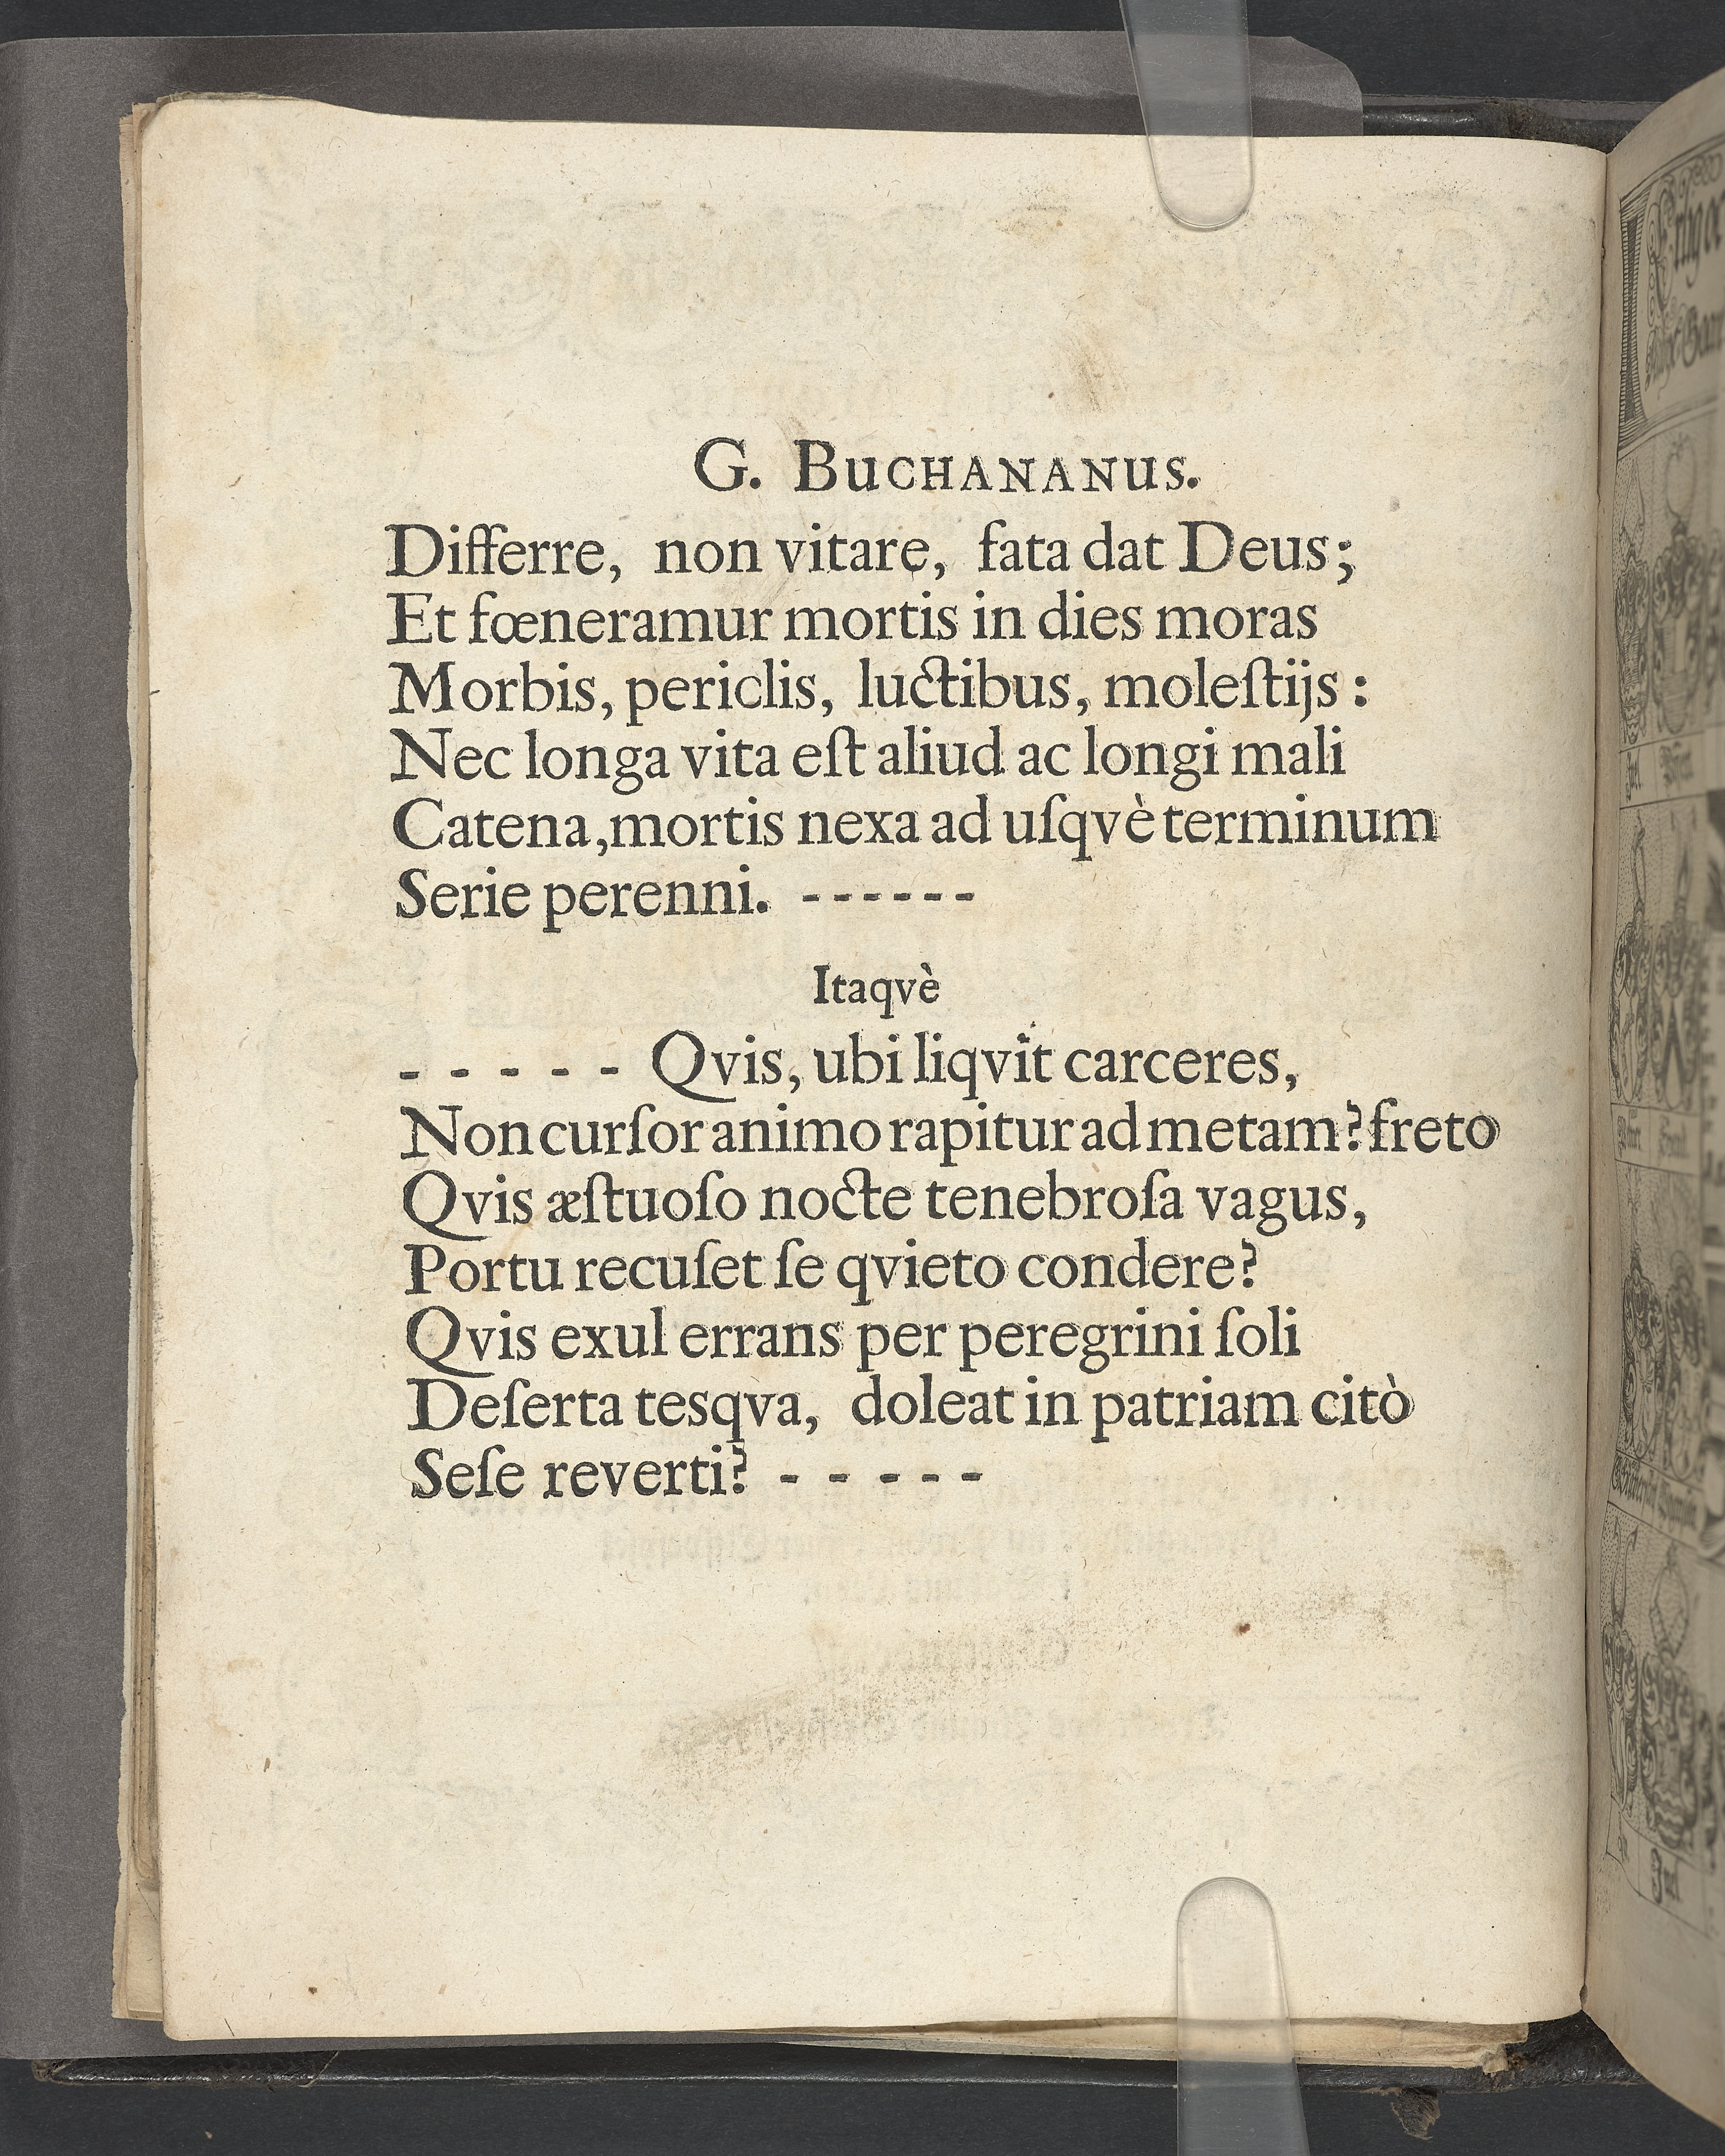 G. BUCHANANUS.
Differre, non vitare, fata dat Deus;
Et fœneramur mortis in dies moras
Morbis, periclis, luctibus, moleſtijs:
Nec longa vita eſt aliud ac longi mali
Catena, mortis nexa ad uſqvè terminum
Serie perenni. ------
Itaqvè
- - - - - Qvis, ubi liqvit carceres,
Non curſor animo rapitur ad metam? freto
Qvis æſtuoſo nocte tenebroſa vagus,
Portu recuſet ſe qvieto condere?
Qvis exul errans per peregrini ſoli
Deſerta tesqva, doleat in patriam citò
Seſe reverti? - - - - -